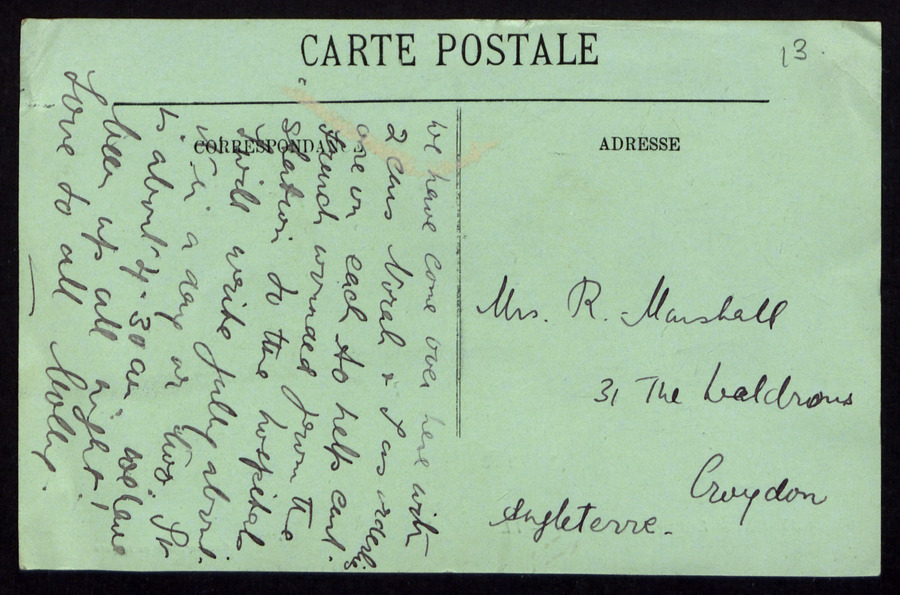 CARTE POSTALE
13.
CORRESPONDANCE
ADRESSE
We have come over here with
2 cars Norah & I as orderlis
one in each to help cart
French wounded from the
station to the hospitals
I will write fully about
in a day or two. It
is about 4.30 am we have
been up all night!
Love to all Molly.
Mrs. R. Marshall
31 The Waldrons
Croydon
Angleterre.